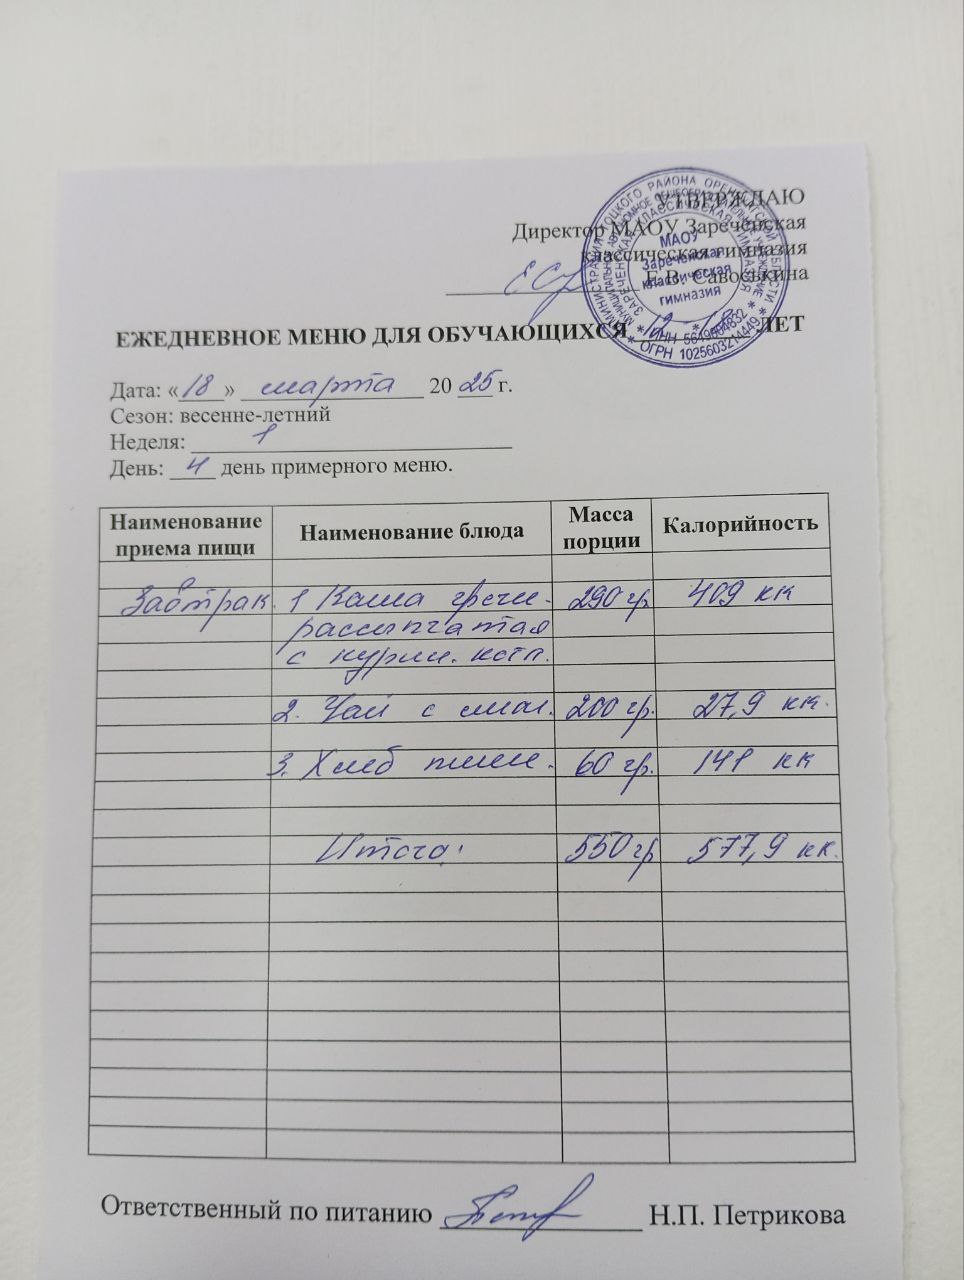 УТВЕРЖДАЮ
Директор МАОУ Зареченская
классическая гимназия
Е.В. Савоськина
МАОУ
Зареченская
классическая
гимназия
* ИНН 5649004832 *
* ОГРН 1025603214449 *
ЕЖЕДНЕВНОЕ МЕНЮ ДЛЯ ОБУЧАЮЩИХСЯ 12 - ЛЕТ
Дата: «18» марта 20 25 г.
Сезон: весенне-летний
Неделя: 1
День: 4 день примерного меню.
Наименование приема пищи Наименование блюда Масса порции Калорийность
Завтрак 1 Каша гречн. 290 гр 409 кк
рассыпчатая
с курин. котл.
2. Чай с лим. 200 гр. 27,9 кк.
3. Хлеб пшен. 60 гр. 141 кк
Итого: 550 гр 577,9 кк.
Ответственный по питанию Н.П. Петрикова